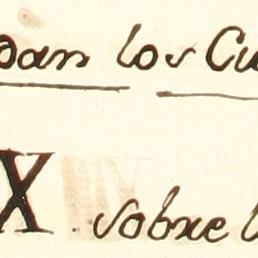 dan los Cu
X sobre l